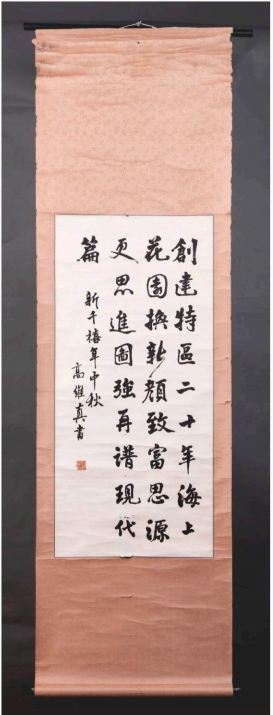 創建特區二十年海上
花園換新顏致富思源
更思進圖強再譜現代
篇
新千禧年中秋
高維真書